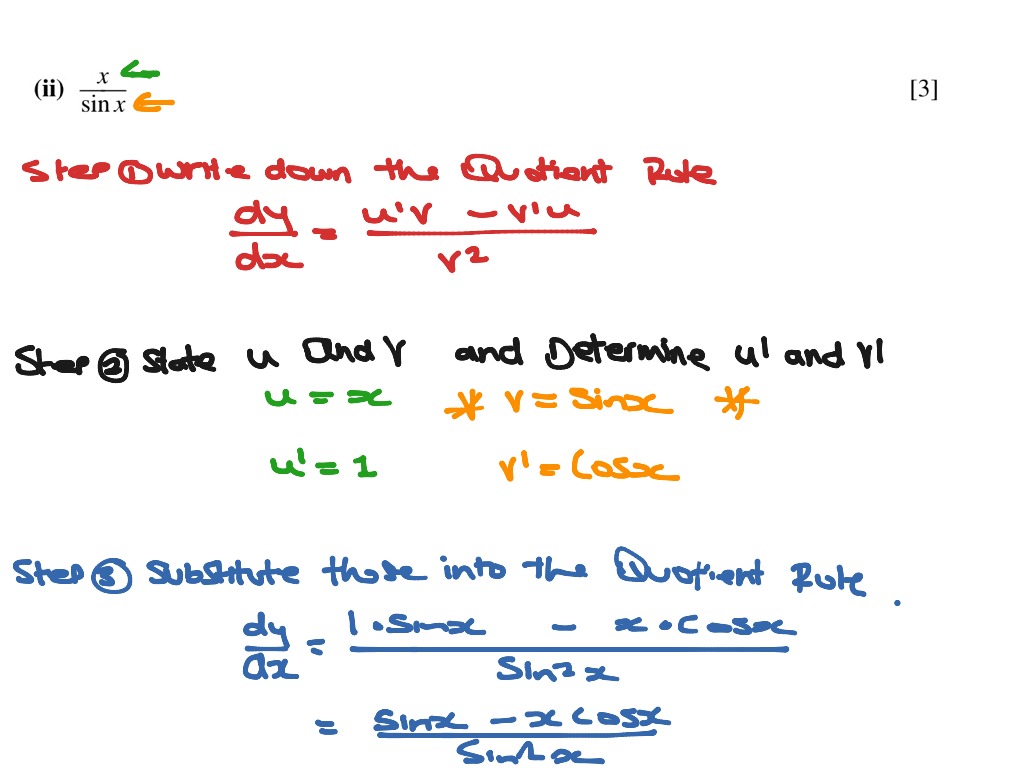 (ii) x/sin x [3]
Step ① Write down the Quotient Rule
dy/dx = (u'v - v'u)/v²
Step ② State u and v and Determine u' and v'
u = x * v = sinx *
u' = 1 v' = Cosx
Step ③ Substitute these into the Quotient Rule.
dy/dx = (1·Sinx - x·Cosx)/Sin²x
= (Sinx - xCosx)/Sin²x